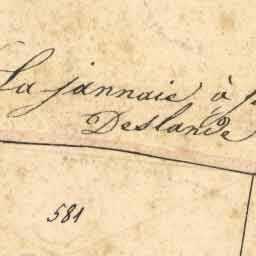 La jannaie à
Deslande
581